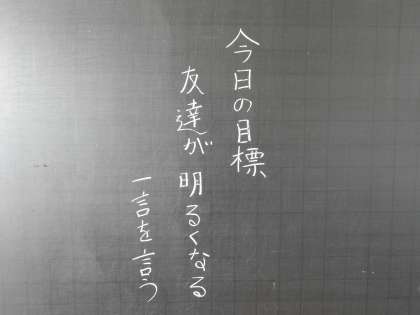 今日の目標
友達が明るくなる
一言を言う